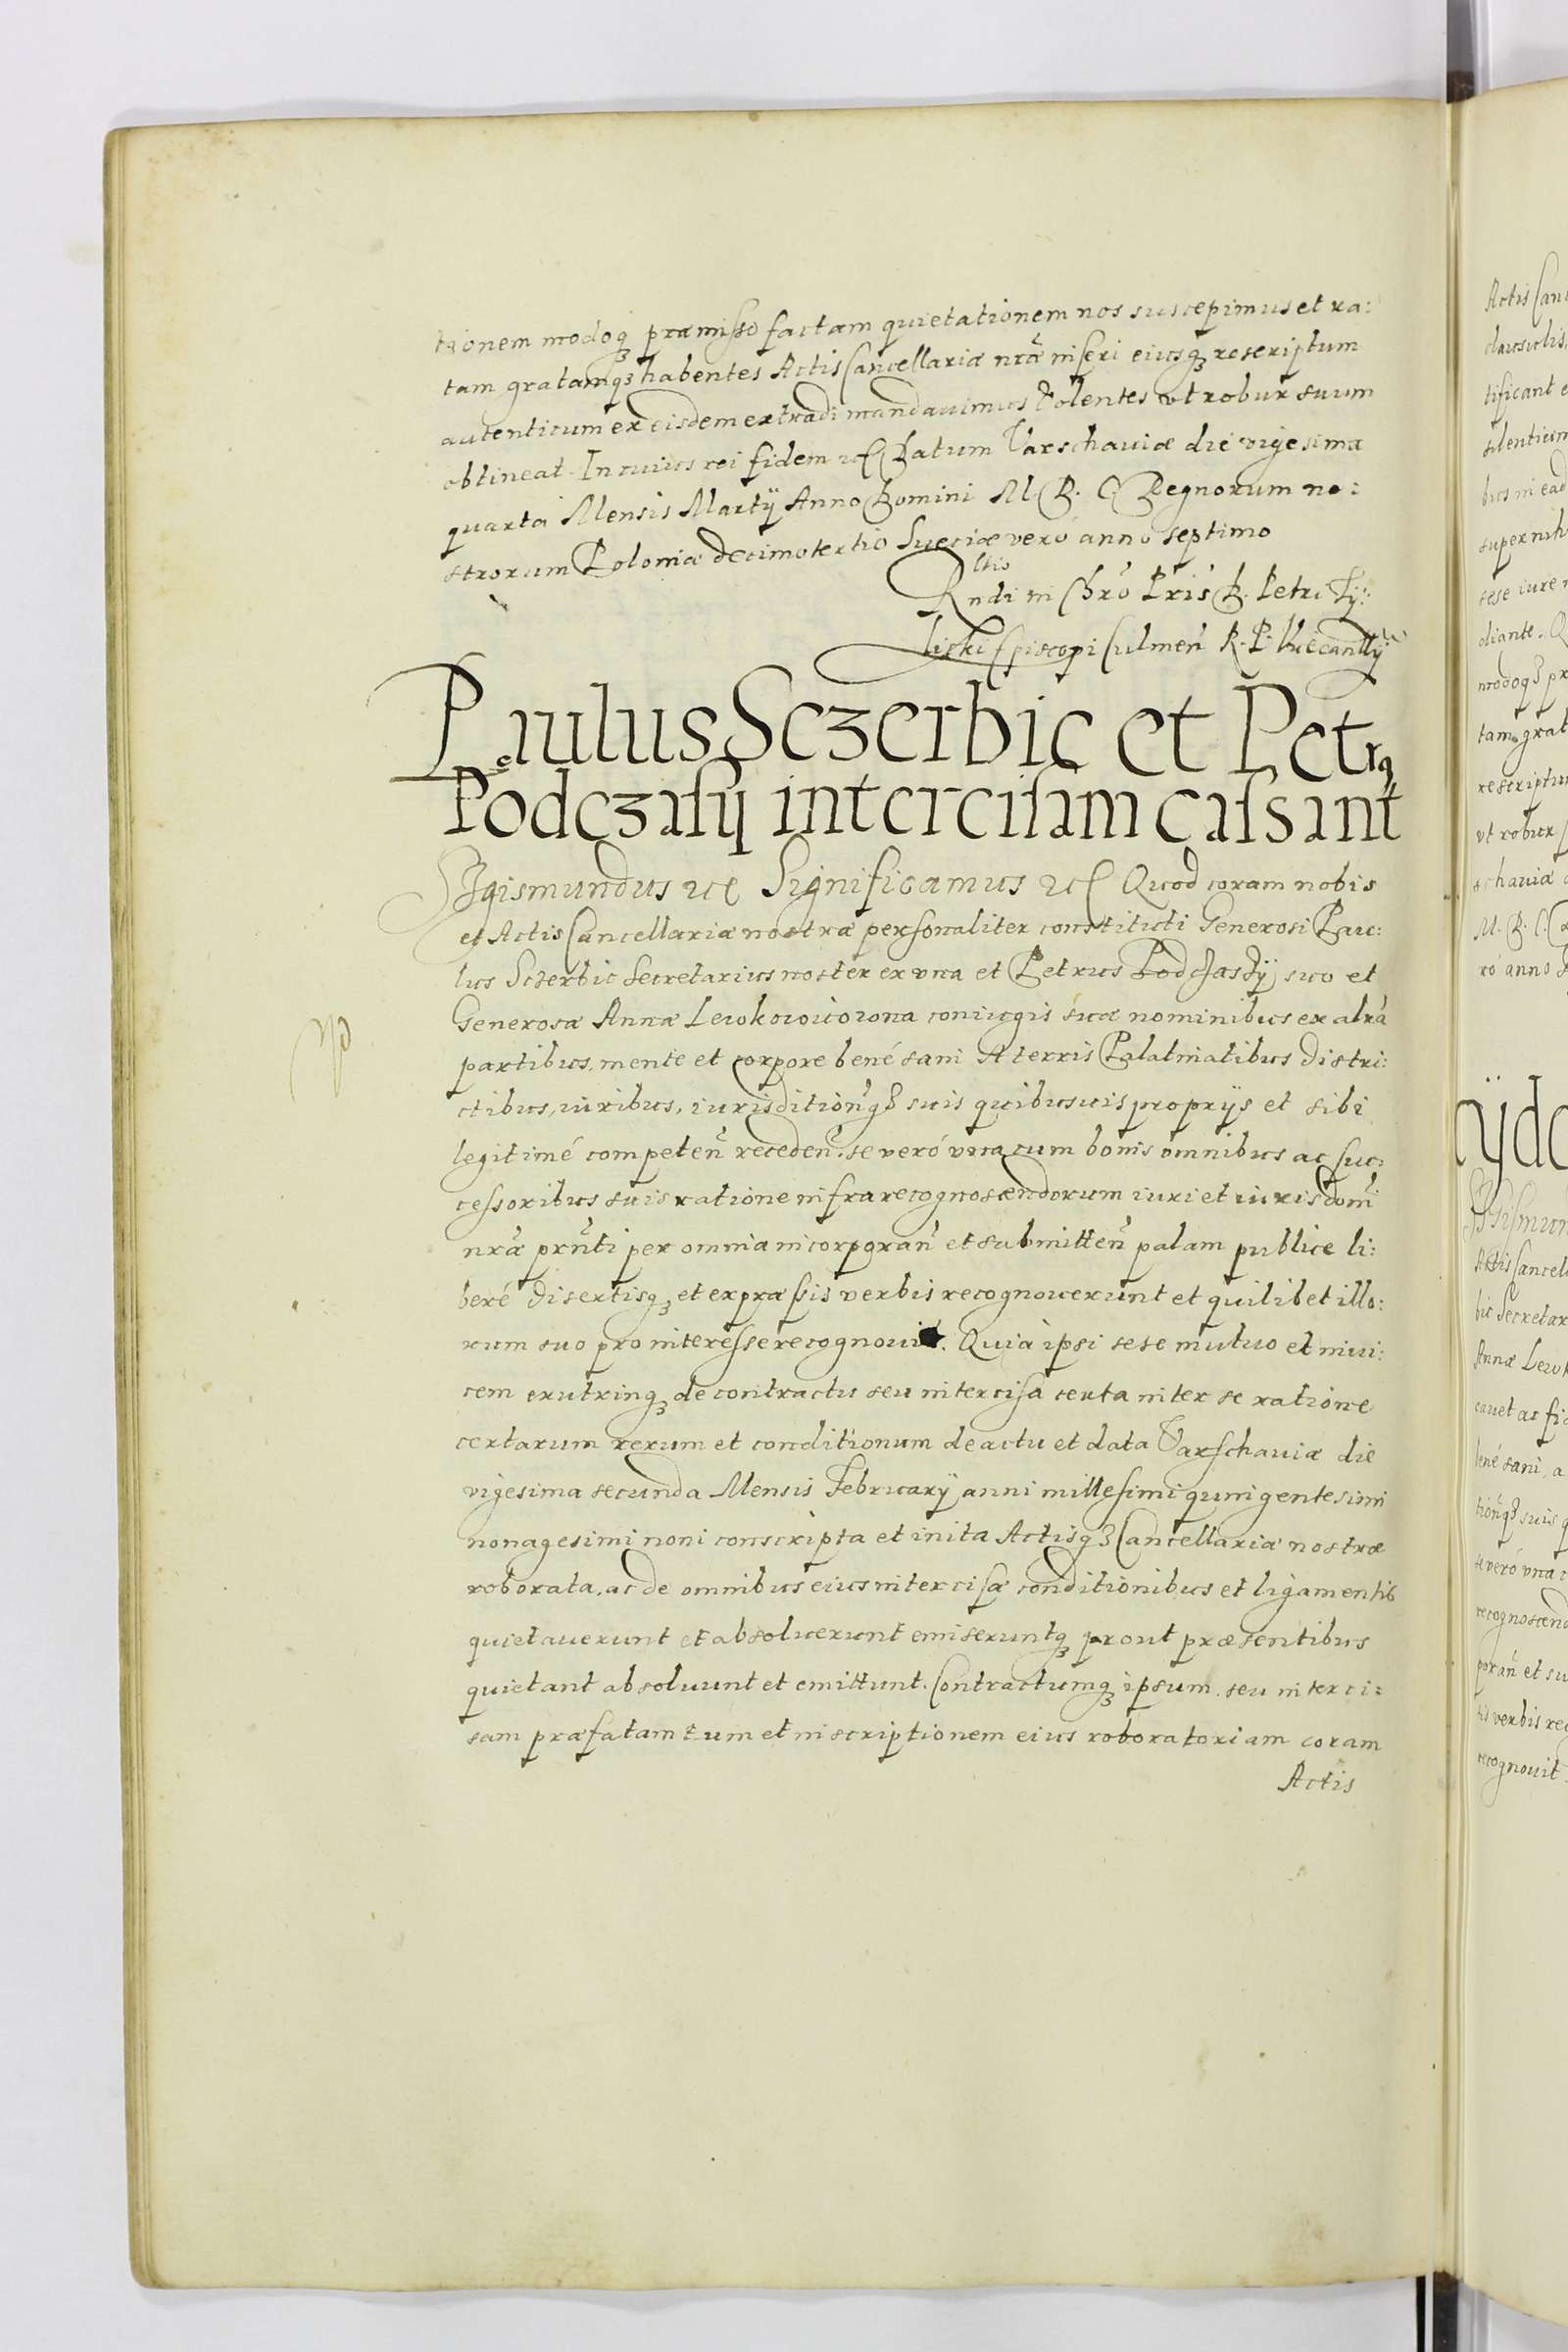 tionem modoq₃ præmisso factam quietationem nos suscepimus et ra:
tam gratamq₃ habentes Actis Cancellariæ nrâ inseri eiusq₃ rescriptum
autenticum ex eisdem extradi mandauimus Volentes vt robur suum
obtineat. In cuius rei fidem etc Datum Varschauiæ die vigesima
quarta Mensis Martÿ Anno Domini M. D. C. Regnorum no:
strorum Poloniæ decimotertio Sueciæ veró anno septimo
Rndi in Chrô Pris D. Petri Ty:
licki Episcopi Culmeñ R. P. Vicecancllÿ
Paulus Sczerbic et Petrꝰ
Podczasÿ intercisam cassant
Sigismundus etc Significamus etc Quod coram nobis
et Actis Cancellariæ nostræ personaliter constituti Generosi Pau:
lus Sczerbic Secretarius noster ex vna et Petrus Podczasÿ suo et
Generosæ Annæ Lewkowicowna coniugis suæ nominibus ex altrâ
partibus, mente et corpore bené sani A terris Palatinatibus distri:
ctibus, iuribus, iurisditioñq₃ suis quibusuis proprÿs et sibi
legitimé competeñ recedeñ. se veró vna cum bonis omnibus ac suc:
cessoribus suis ratione infrarecognoscendorum iuri et iurisdoni
nrâ prñti per omnia incorporañ et submitteñ palam publice li:
beré disertisq₃ et expræssis verbis recognouerunt et quilibet illo:
rum suo pro interesse recognouit. Quia ipsi sese mutuo et inui:
cem exutrinq₃ de contractu seu intercisa certa inter se ratione
certarum rerum et conditionum de actu et data Varschauiæ die
vigesima secunda Mensis Februarÿ anni millesimi quingentesimi
nonagesimi noni conscripta et inita Actisq₃ Cancellariæ nostræ
roborata, ac de omnibus eius intercisæ conditionibus et ligamentis
quietauerunt et absoluerunt emiseruntq₃ prout præsentibus
quietant absoluunt et emittunt. Contractumq₃ ipsum seu interci:
sam præfatam tum et inscriptionem eius roboratoriam coram
Actis